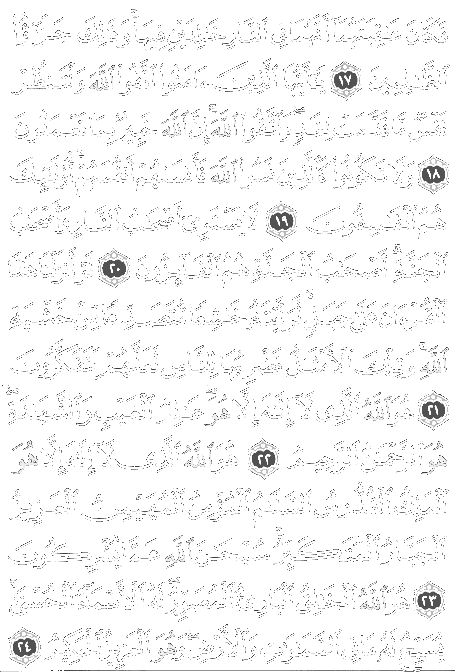 فَكَانَ عَٰقِبَتَهُمَآ أَنَّهُمَا فِى ٱلنَّارِ خَٰلِدَيْنِ فِيهَا ۚ وَذَٰلِكَ جَزَٰٓؤُا۟
ٱلظَّٰلِمِينَ ١٧ يَٰٓأَيُّهَا ٱلَّذِينَ ءَامَنُوا۟ ٱتَّقُوا۟ ٱللَّهَ وَلْتَنظُرْ
نَفْسٌ مَّا قَدَّمَتْ لِغَدٍ ۖ وَٱتَّقُوا۟ ٱللَّهَ ۚ إِنَّ ٱللَّهَ خَبِيرٌۢ بِمَا تَعْمَلُونَ
١٨ وَلَا تَكُونُوا۟ كَٱلَّذِينَ نَسُوا۟ ٱللَّهَ فَأَنسَىٰهُمْ أَنفُسَهُمْ ۚ أُو۟لَٰٓئِكَ
هُمُ ٱلْفَٰسِقُونَ ١٩ لَا يَسْتَوِىٓ أَصْحَٰبُ ٱلنَّارِ وَأَصْحَٰبُ
ٱلْجَنَّةِ ۚ أَصْحَٰبُ ٱلْجَنَّةِ هُمُ ٱلْفَآئِزُونَ ٢٠ لَوْ أَنزَلْنَا هَٰذَا
ٱلْقُرْءَانَ عَلَىٰ جَبَلٍ لَّرَأَيْتَهُۥ خَٰشِعًا مُّتَصَدِّعًا مِّنْ خَشْيَةِ
ٱللَّهِ ۚ وَتِلْكَ ٱلْأَمْثَٰلُ نَضْرِبُهَا لِلنَّاسِ لَعَلَّهُمْ يَتَفَكَّرُونَ
٢١ هُوَ ٱللَّهُ ٱلَّذِى لَآ إِلَٰهَ إِلَّا هُوَ ۖ عَٰلِمُ ٱلْغَيْبِ وَٱلشَّهَٰدَةِ ۖ
هُوَ ٱلرَّحْمَٰنُ ٱلرَّحِيمُ ٢٢ هُوَ ٱللَّهُ ٱلَّذِى لَآ إِلَٰهَ إِلَّا هُوَ
ٱلْمَلِكُ ٱلْقُدُّوسُ ٱلسَّلَٰمُ ٱلْمُؤْمِنُ ٱلْمُهَيْمِنُ ٱلْعَزِيزُ
ٱلْجَبَّارُ ٱلْمُتَكَبِّرُ ۚ سُبْحَٰنَ ٱللَّهِ عَمَّا يُشْرِكُونَ
٢٣ هُوَ ٱللَّهُ ٱلْخَٰلِقُ ٱلْبَارِئُ ٱلْمُصَوِّرُ ۖ لَهُ ٱلْأَسْمَآءُ ٱلْحُسْنَىٰ ۚ
يُسَبِّحُ لَهُۥ مَا فِى ٱلسَّمَٰوَٰتِ وَٱلْأَرْضِ ۖ وَهُوَ ٱلْعَزِيزُ ٱلْحَكِيمُ ٢٤